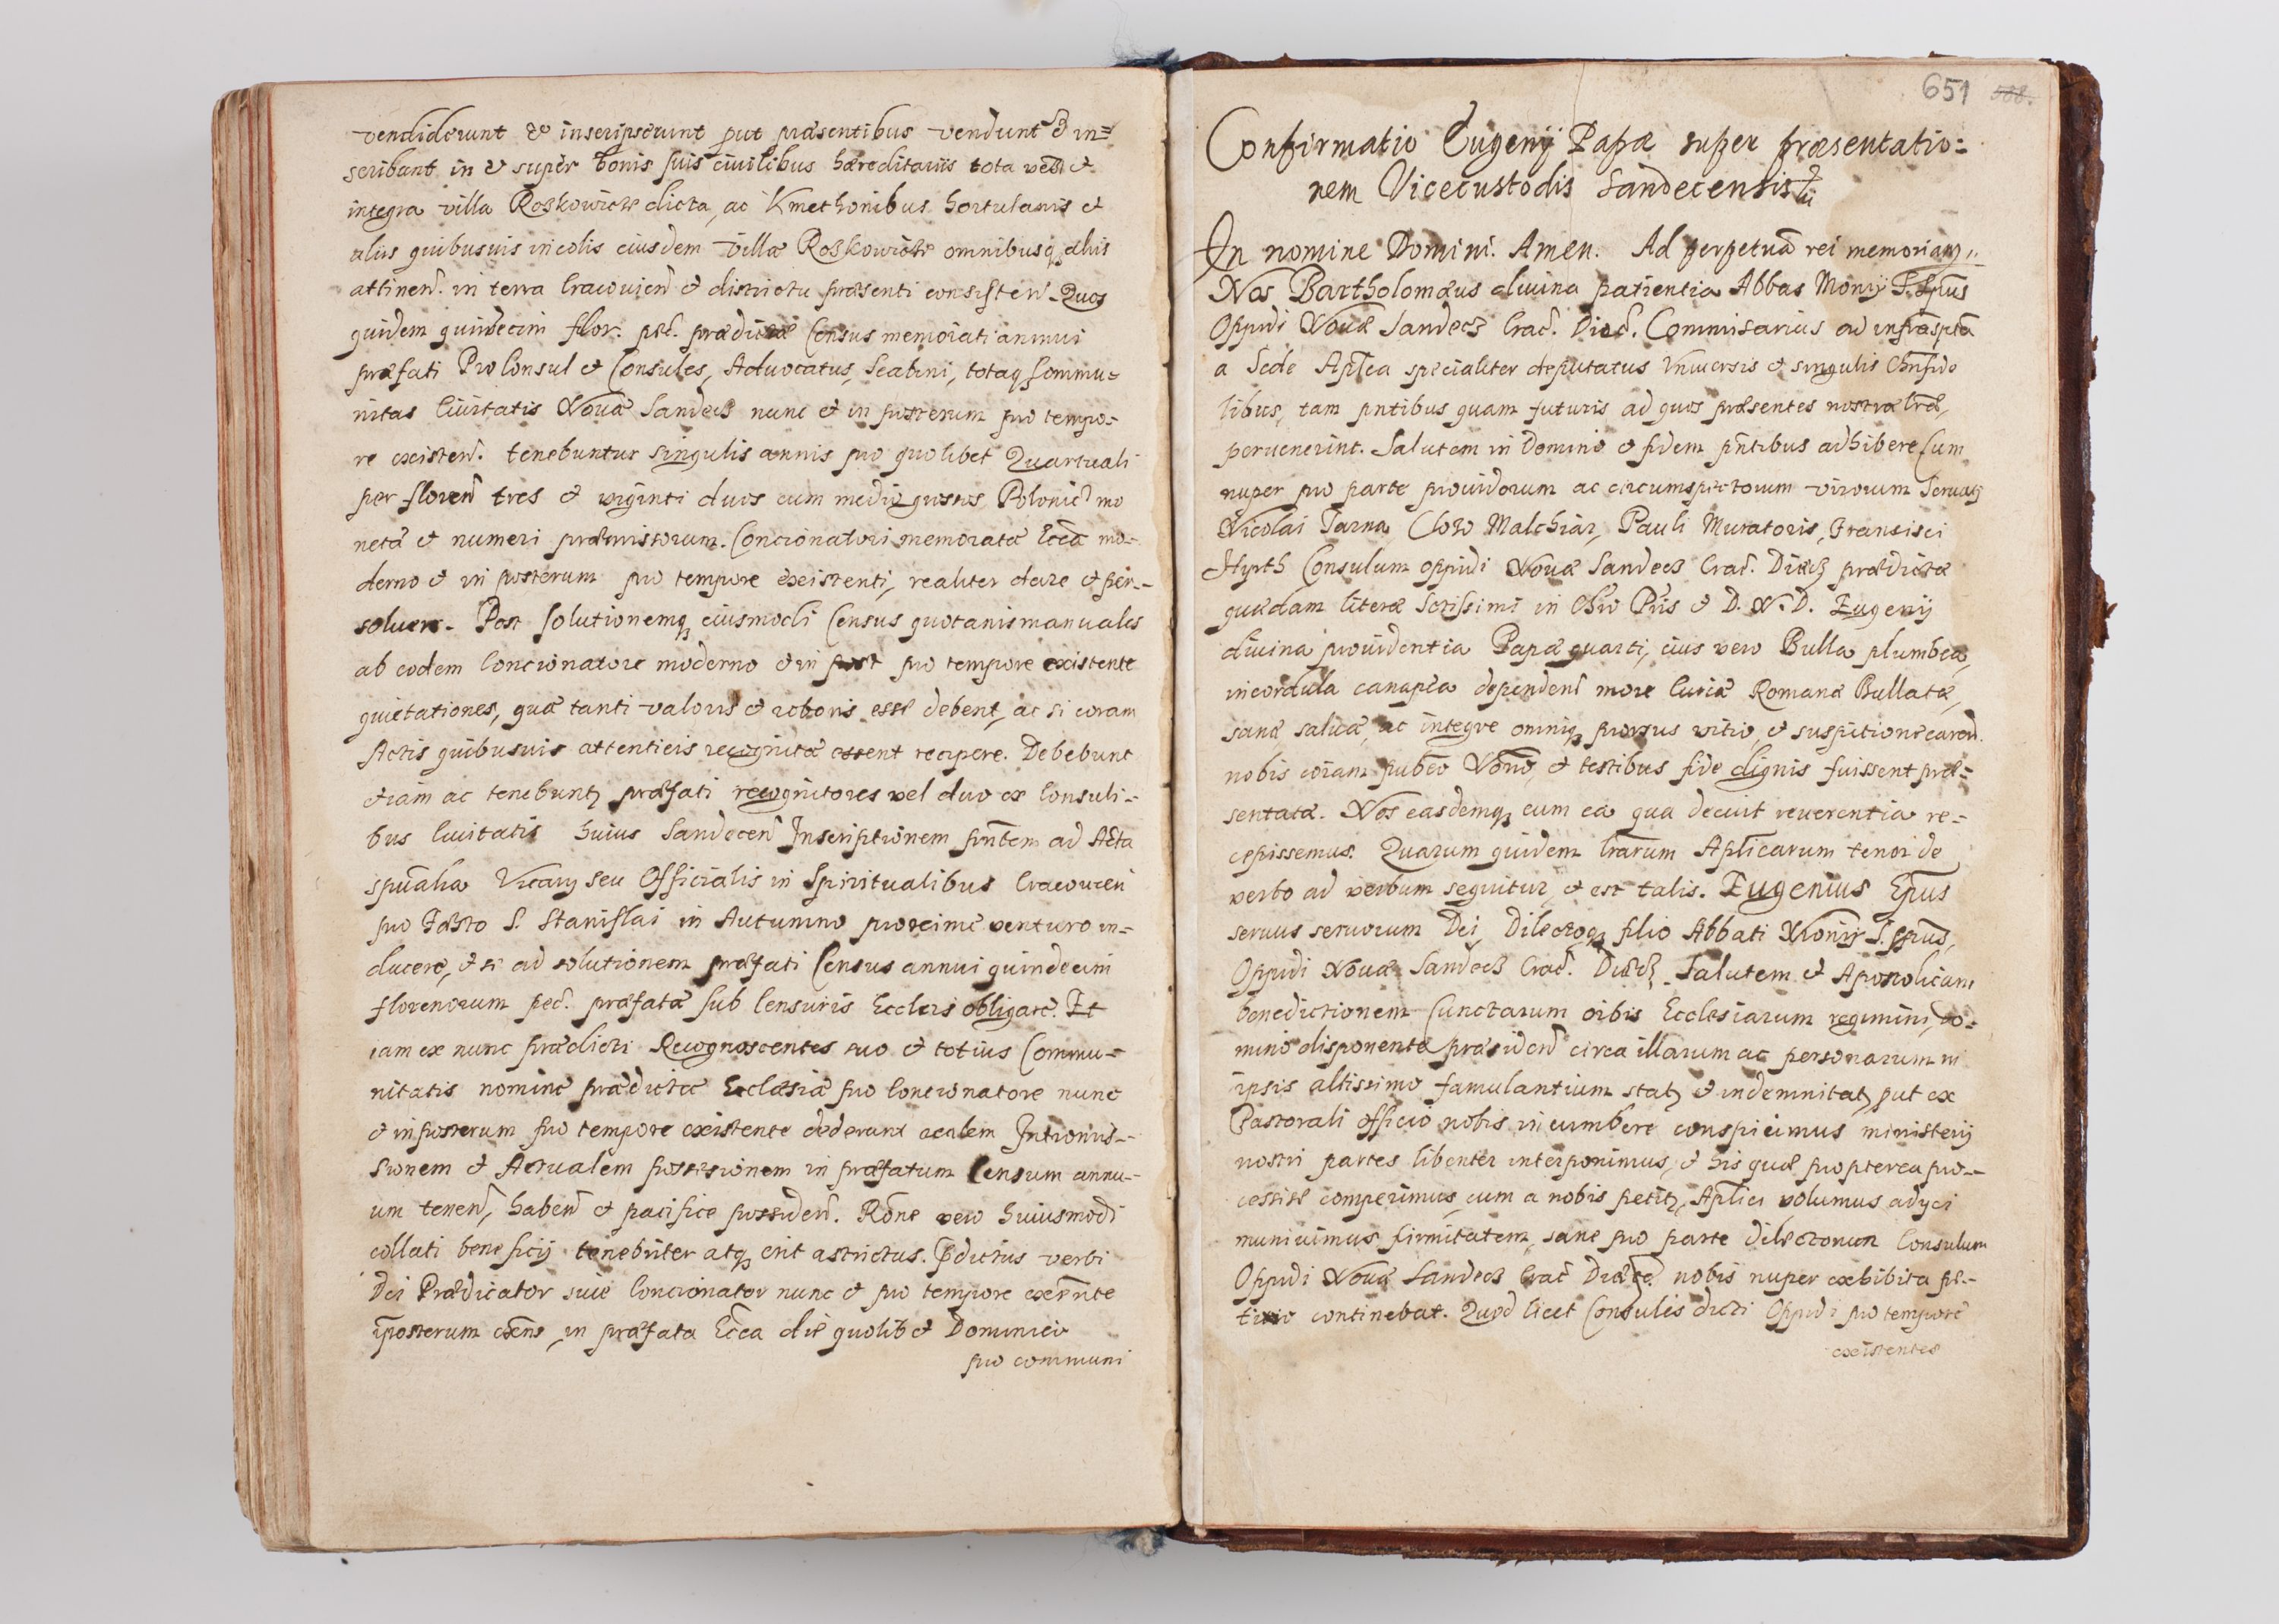 vendiderunt et inscripserunt put præsentibus vendunt et in=
scribunt in et super bonis suis ciuilibus hæreditariis tota
integra villa Roszkowicze dicta, ac Kmethonibus hortulanis et
aliis quibusuis incolis eiusdem villæ Roszkowicze omnibusq aliis
attinen. in terra Cracouien et districtu præsenti consisten. Quos
quidem quindecim flor. pec. prædictæ Census memorati annui
præfati ProConsul et Consules, Aduocatus, Scabini, totaq Commu=
nitas Ciuitatis Nouæ Sandecz nunc et in posterum pro tempo-
re existen. tenebuntur singulis annis pro quolibet Quartuali
per floren tres et viginti duos cum medio grossos Polonic mo
netæ et numeri præmissorum. Concionatori memoratæ Eccæ mo-
derno et in posterum pro tempore existenti, realiter dare et per-
soluere. Post solutionemq eiusmodi Census quotanis manuales
ab eodem Concionatore moderno et in post pro tempore existente
quietationes, quæ tanti valoris et roboris esse debent, ac si coram
Actis quibusuis attenticis recognitæ essent recipere. Debebunt
etiam ac tenebunt præfati recognitores vel duo ex Consuli-
bus Ciuitatis huius Sandecen Inscriptionem pntem ad Acta
spualia Vicarij seu Officialis in Spiritualibus Cracouien
pro Festo S. Stanislai in Autumno proxime venturo in-
ducere, et se ad solutionem præfati Census annui quindecim
florenorum pec. præfatæ sub Censuris Eccleis obligare. Et
iam ex nunc prædicti Recognoscentes suo et totius Commu-
nitatis nomine prædictæ Ecclesiæ pro Concionatore nunc
et in posterum pro tempore existente dederunt realem Intromis-
sionem et Actualem possessionem in præfatum Censum annu-
um tenen, haben et pacifice possiden. Rone vero huiusmodi
collati beneficij tenebiter atq erit astrictus. Pdictus verbi
Dei Prædicator siue Concionator nunc et pro tempore
iposterum exens, in præfata Ecca die quolibet Dominico
pro communi
651 588.
Confirmatio Eugenij Papæ super præsentatio=
nem Vicecustodis Sandecensis
In nomine Domini. Amen. Ad perpetuā rei memoriam
Nos Bartholomæus diuina patientia Abbas Monrij S. Spūs
Oppidi Nouæ Sandecz Crac. Diec. Commisarius ad infrāsptā
a Sede Aplica specialiter deputatus Vniuersis et singulis Chrifide
libus, tam pntibus quam futuris ad quos præsentes nostræ lræ,
peruenerint. Salutem in Domino et fidem pntibus adhibere Cum
nuper pro parte prouidorum ac circumspectorum virorum Seruatij
Nicolai Tarna Clozo Malchiar, Pauli Muratoris, Francisci
Hyrth Consulum oppidi Nouæ Sandecz Crac. Diæc prædictæ
quædam literæ Sctissimi in Chro Pris et D. N. D. Eugenij
diuina prouidentia Papæ quarti, eius vero Bulla plumbea,
incordula canapea dependen more Curiæ Romanæ Bullatæ,
sanæ saluæ, ac integræ omniq prorsus vitio, et suspitione caren.
nobis coram pubco Nōrio, et testibus fide dignis fuissent præ-
sentatæ. Nos easdemq cum ea qua decuit reuerentia re-
cepissemus. Quarum quidem lrarum Aplicarum tenor de
verbo ad verbum sequitur, et est talis. Eugenius Epus
seruus seruorum Dei, Dilectoq filio Abbati Monrij S. Spūs,
Oppidi Nouæ Sandecz Crac. Diæc. Salutem et Apostolicam
benedictionem Cunctarum orbis Ecclesiarum regimini, Do-
mino disponente præsiden circa illarum ac personarum in
ipsis altissimo famulantium stat et indemnitat, put ex
Pastorali officio nobis incumbere conspicimus ministerij
nostri partes libenter interponimus, et his quæ propterea pro-
cessisse comperimus, cum a nobis petit, Aplici volumus adijci
muniuimus firmitatem, sane pro parte Dilectorum Consulum
Oppidi Nouæ Sandecz Crac Diæce. nobis nuper exhibita pe-
titio continebat. Quod licet Consulis dicti Oppidi pro tempore
existentes